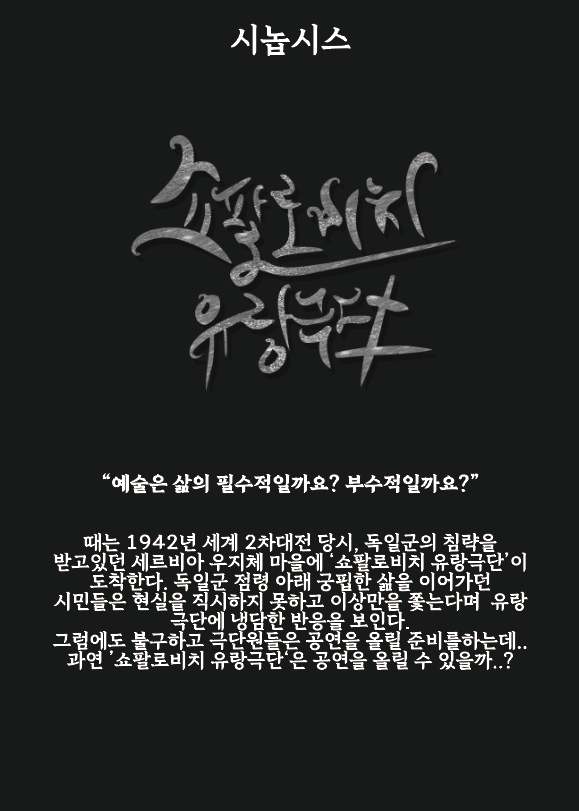 시놉시스
쇼팔로비치
유랑극단
“예술은 삶의 필수적일까요? 부수적일까요?”
때는 1942년 세계 2차대전 당시, 독일군의 침략을
받고있던 세르비아 우지체 마을에 ‘쇼팔로비치 유랑극단’이
도착한다. 독일군 점령 아래 궁핍한 삶을 이어가던
시민들은 현실을 직시하지 못하고 이상만을 쫓는다며 유랑
극단에 냉담한 반응을 보인다.
그럼에도 불구하고 극단원들은 공연을 올릴 준비를하는데..
과연 ’쇼팔로비치 유랑극단‘은 공연을 올릴 수 있을까..?